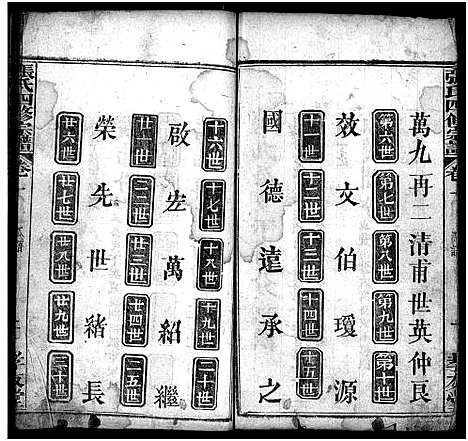 張氏四修宗譜 卷一
萬九再二清甫世英仲良
第六世 第七世 第八世 第九世 第十世
效文伯瓊源
十一世 十二世 十三世 十四世 十五世
國德遠承之
十六世 十七世 十八世 十九世 二十世
啟宏萬紹繼
廿一世 二二世 二三世 廿四世 二五世
榮先世緒長
廿六世 廿七世 廿八世 廿九世 三十世
張氏四修宗譜 卷一